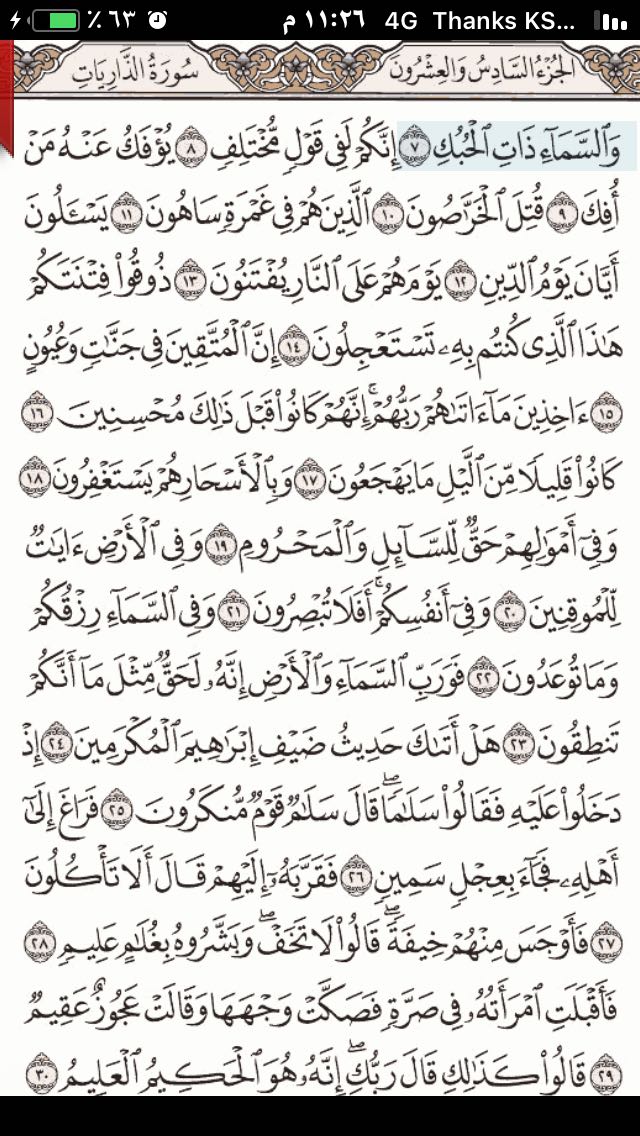 ٪٦٣ ١١:٢٦ م 4G Thanks KS...
الجُزْءُ السَّادِسُ وَالعِشْرُونَ سُورَةُ الذَّارِيَاتِ
وَٱلسَّمَآءِ ذَاتِ ٱلْحُبُكِ ٧ إِنَّكُمْ لَفِى قَوْلٍ مُّخْتَلِفٍ ٨ يُؤْفَكُ عَنْهُ مَنْ
أُفِكَ ٩ قُتِلَ ٱلْخَرَّٰصُونَ ١٠ ٱلَّذِينَ هُمْ فِى غَمْرَةٍ سَاهُونَ ١١ يَسْـَٔلُونَ
أَيَّانَ يَوْمُ ٱلدِّينِ ١٢ يَوْمَ هُمْ عَلَى ٱلنَّارِ يُفْتَنُونَ ١٣ ذُوقُوا۟ فِتْنَتَكُمْ
هَٰذَا ٱلَّذِى كُنتُم بِهِۦ تَسْتَعْجِلُونَ ١٤ إِنَّ ٱلْمُتَّقِينَ فِى جَنَّٰتٍ وَعُيُونٍ
١٥ ءَاخِذِينَ مَآ ءَاتَىٰهُمْ رَبُّهُمْ ۚ إِنَّهُمْ كَانُوا۟ قَبْلَ ذَٰلِكَ مُحْسِنِينَ ١٦
كَانُوا۟ قَلِيلًا مِّنَ ٱلَّيْلِ مَا يَهْجَعُونَ ١٧ وَبِٱلْأَسْحَارِ هُمْ يَسْتَغْفِرُونَ ١٨
وَفِىٓ أَمْوَٰلِهِمْ حَقٌّ لِّلسَّآئِلِ وَٱلْمَحْرُومِ ١٩ وَفِى ٱلْأَرْضِ ءَايَٰتٌ
لِّلْمُوقِنِينَ ٢٠ وَفِىٓ أَنفُسِكُمْ ۚ أَفَلَا تُبْصِرُونَ ٢١ وَفِى ٱلسَّمَآءِ رِزْقُكُمْ
وَمَا تُوعَدُونَ ٢٢ فَوَرَبِّ ٱلسَّمَآءِ وَٱلْأَرْضِ إِنَّهُۥ لَحَقٌّ مِّثْلَ مَآ أَنَّكُمْ
تَنطِقُونَ ٢٣ هَلْ أَتَىٰكَ حَدِيثُ ضَيْفِ إِبْرَٰهِيمَ ٱلْمُكْرَمِينَ ٢٤ إِذْ
دَخَلُوا۟ عَلَيْهِ فَقَالُوا۟ سَلَٰمًا ۖ قَالَ سَلَٰمٌ قَوْمٌ مُّنكَرُونَ ٢٥ فَرَاغَ إِلَىٰٓ
أَهْلِهِۦ فَجَآءَ بِعِجْلٍ سَمِينٍ ٢٦ فَقَرَّبَهُۥٓ إِلَيْهِمْ قَالَ أَلَا تَأْكُلُونَ
٢٧ فَأَوْجَسَ مِنْهُمْ خِيفَةً ۖ قَالُوا۟ لَا تَخَفْ ۖ وَبَشَّرُوهُ بِغُلَٰمٍ عَلِيمٍ ٢٨
فَأَقْبَلَتِ ٱمْرَأَتُهُۥ فِى صَرَّةٍ فَصَكَّتْ وَجْهَهَا وَقَالَتْ عَجُوزٌ عَقِيمٌ
٢٩ قَالُوا۟ كَذَٰلِكِ قَالَ رَبُّكِ ۖ إِنَّهُۥ هُوَ ٱلْحَكِيمُ ٱلْعَلِيمُ ٣٠